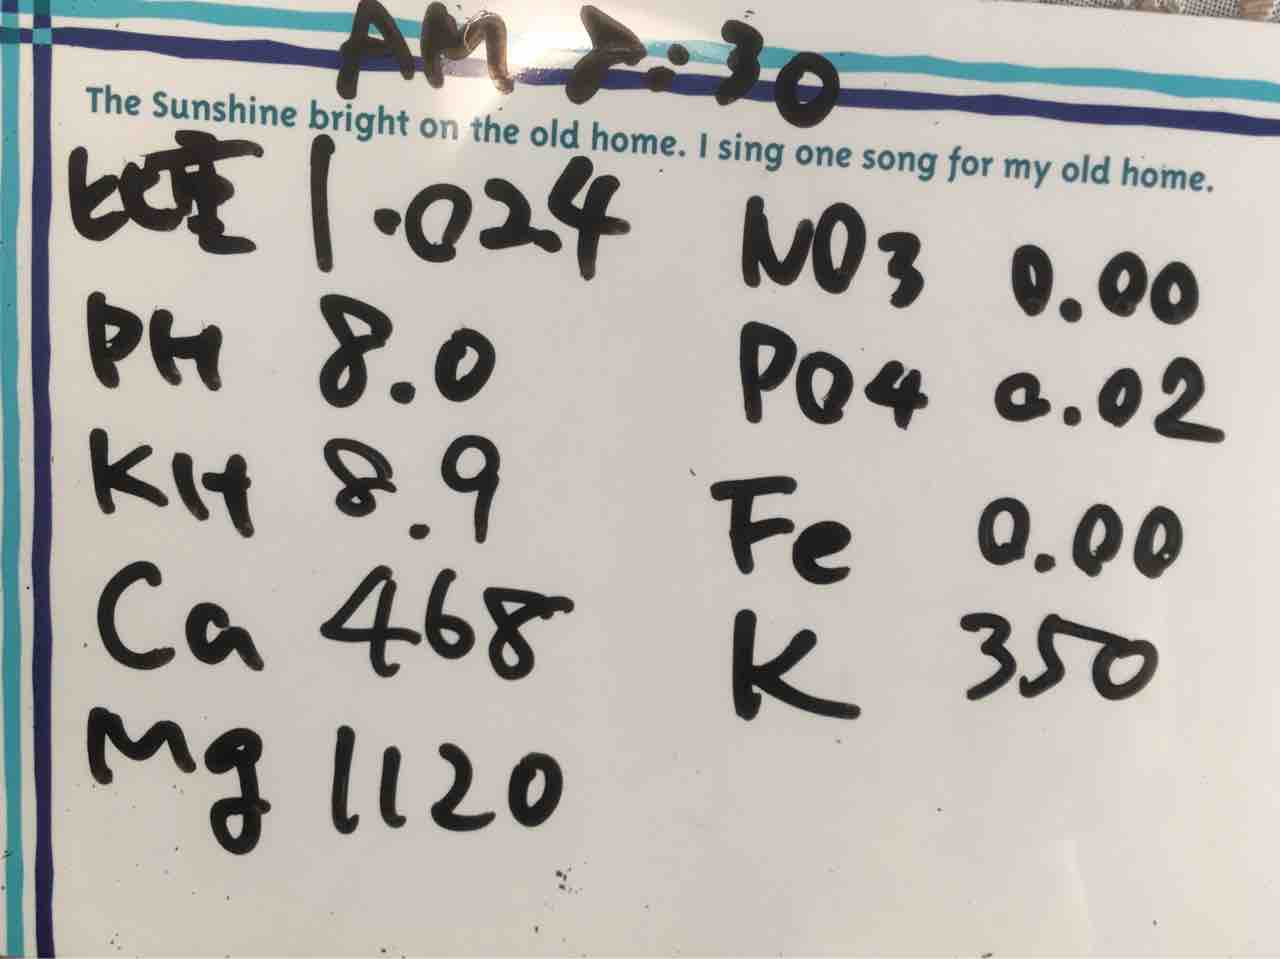 AM 8:30
The Sunshine bright on the old home. I sing one song for my old home.
比重 1.024
PH 8.0
KH 8.9
Ca 468
Mg 1120
NO3 0.00
PO4 0.02
Fe 0.00
K 350